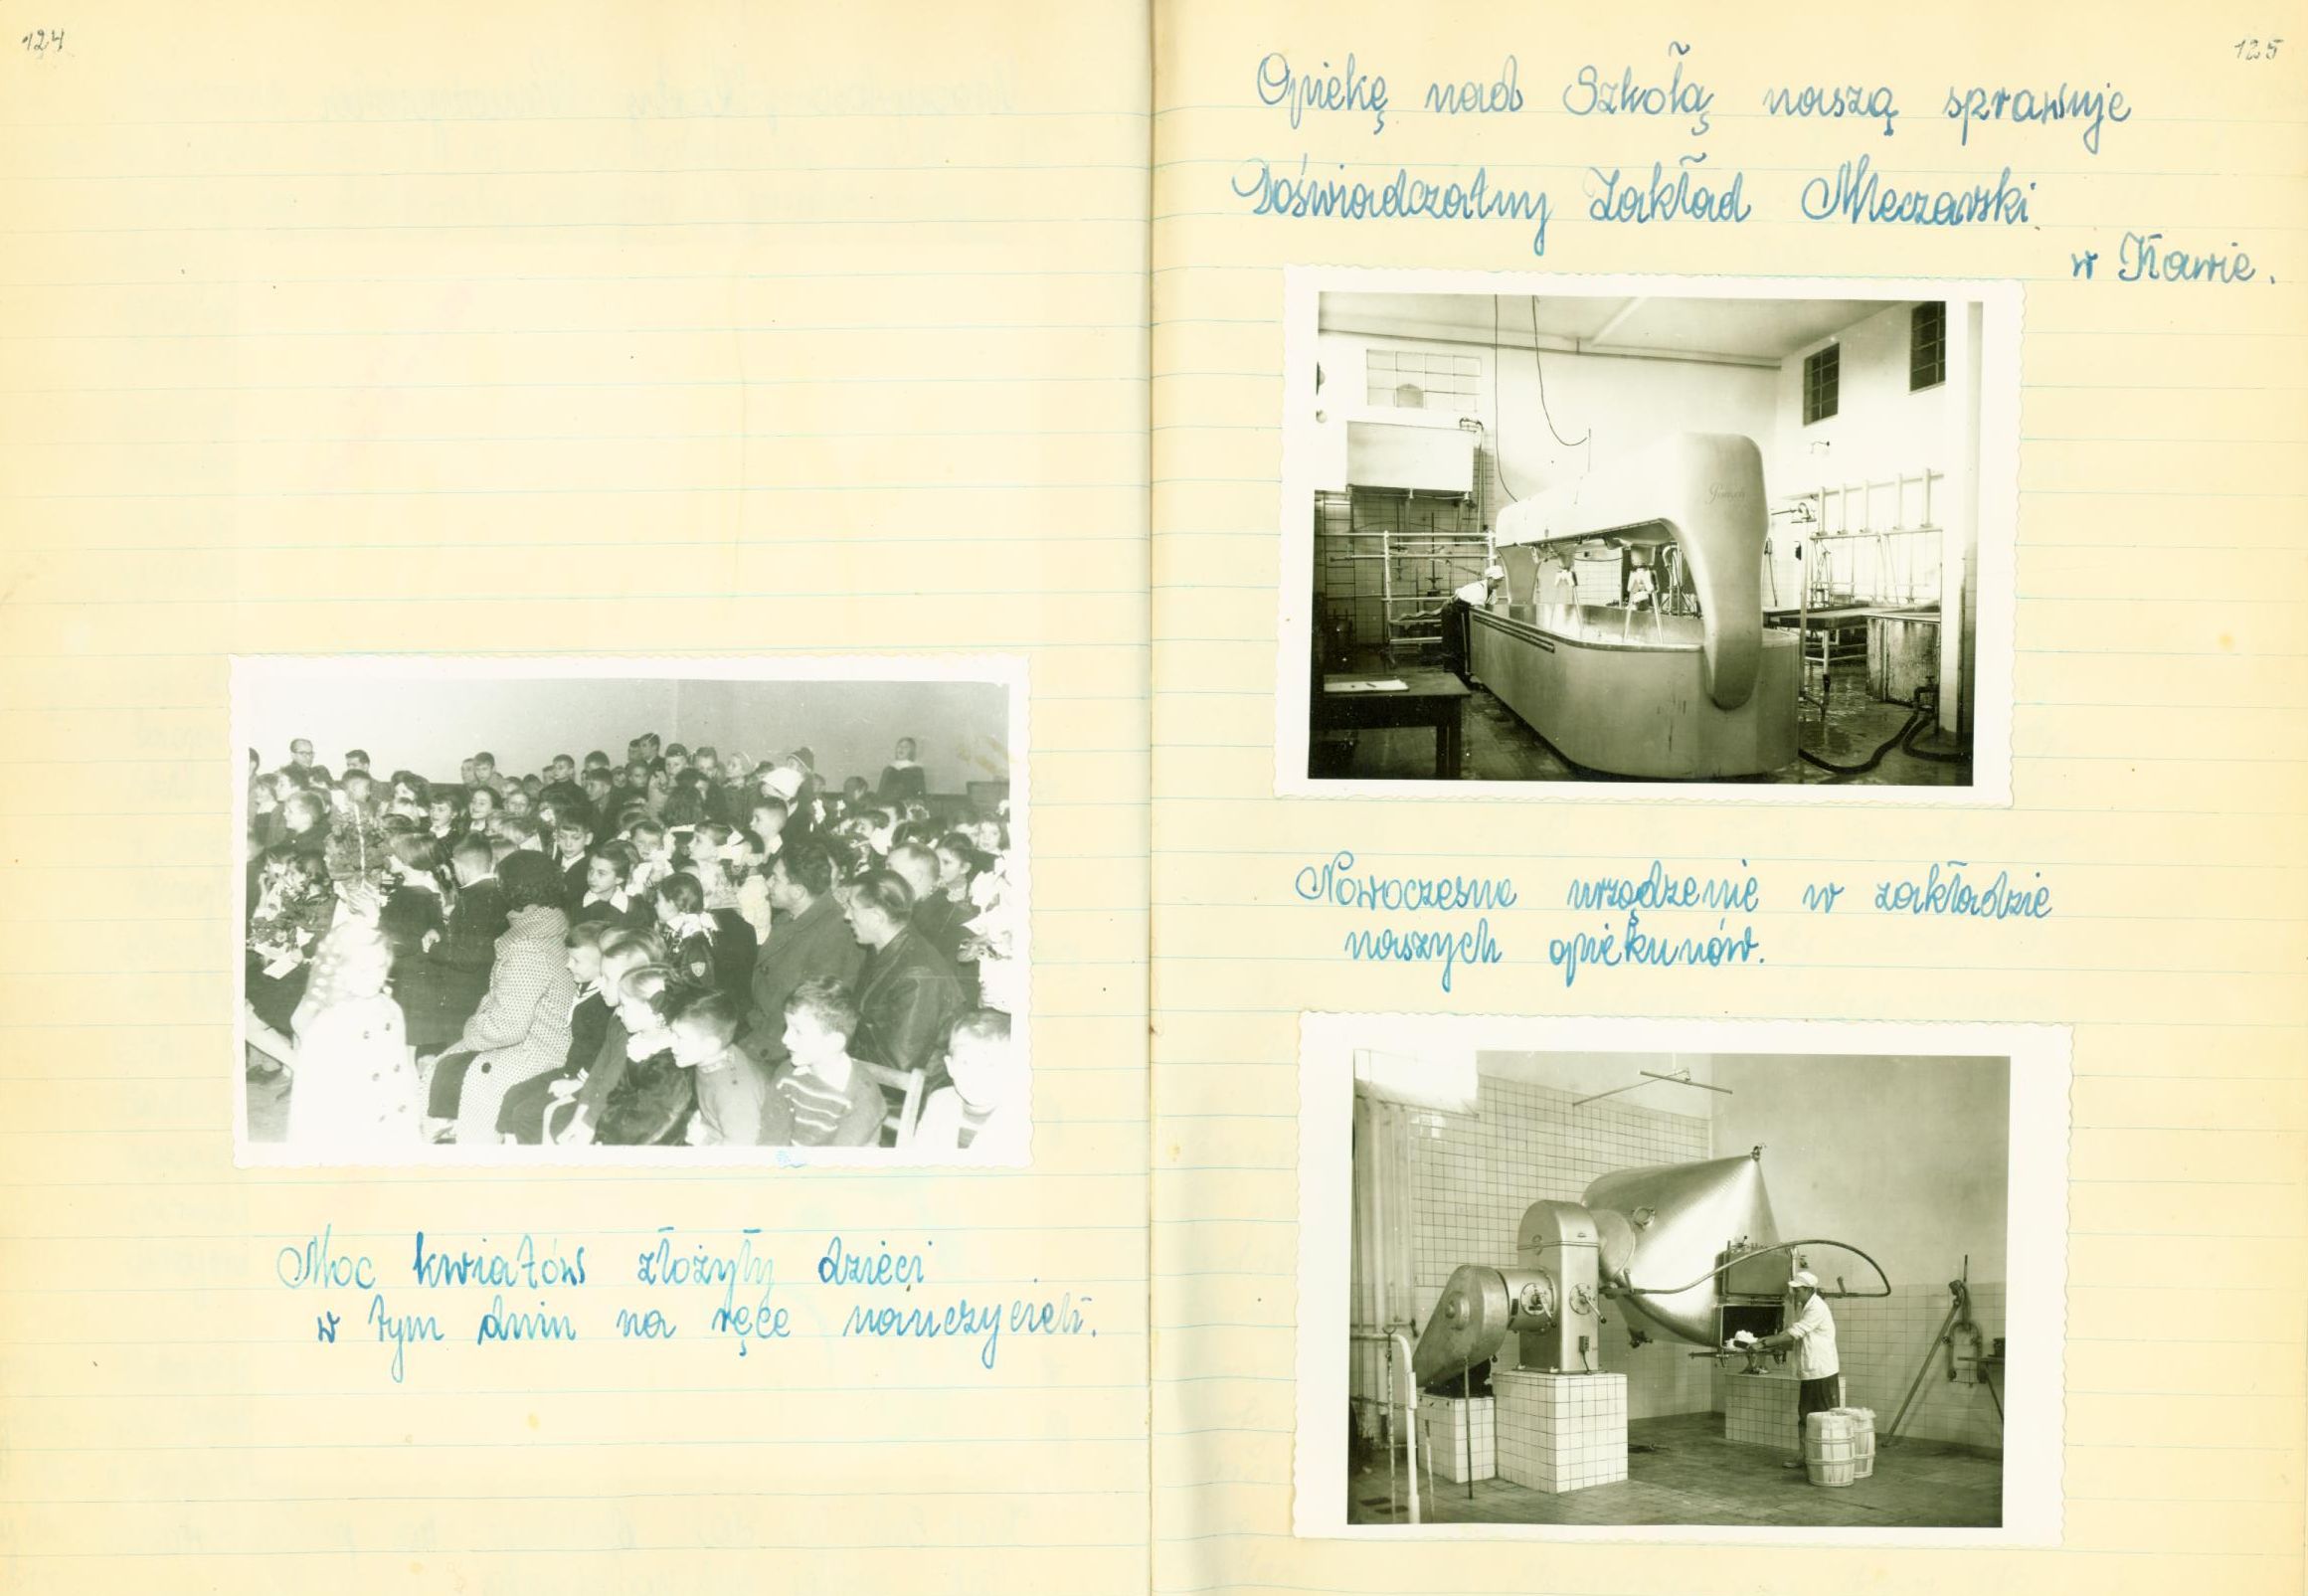 124
Moc kwiatów złożyły dzieci
w tym dniu na ręce nauczycieli.
125
Opiekę nad Szkołą naszą sprawuje
Doświadczalny Zakład Mleczarski
w Iławie.
Nowoczesne urządzenie w zakładzie
naszych opiekunów.